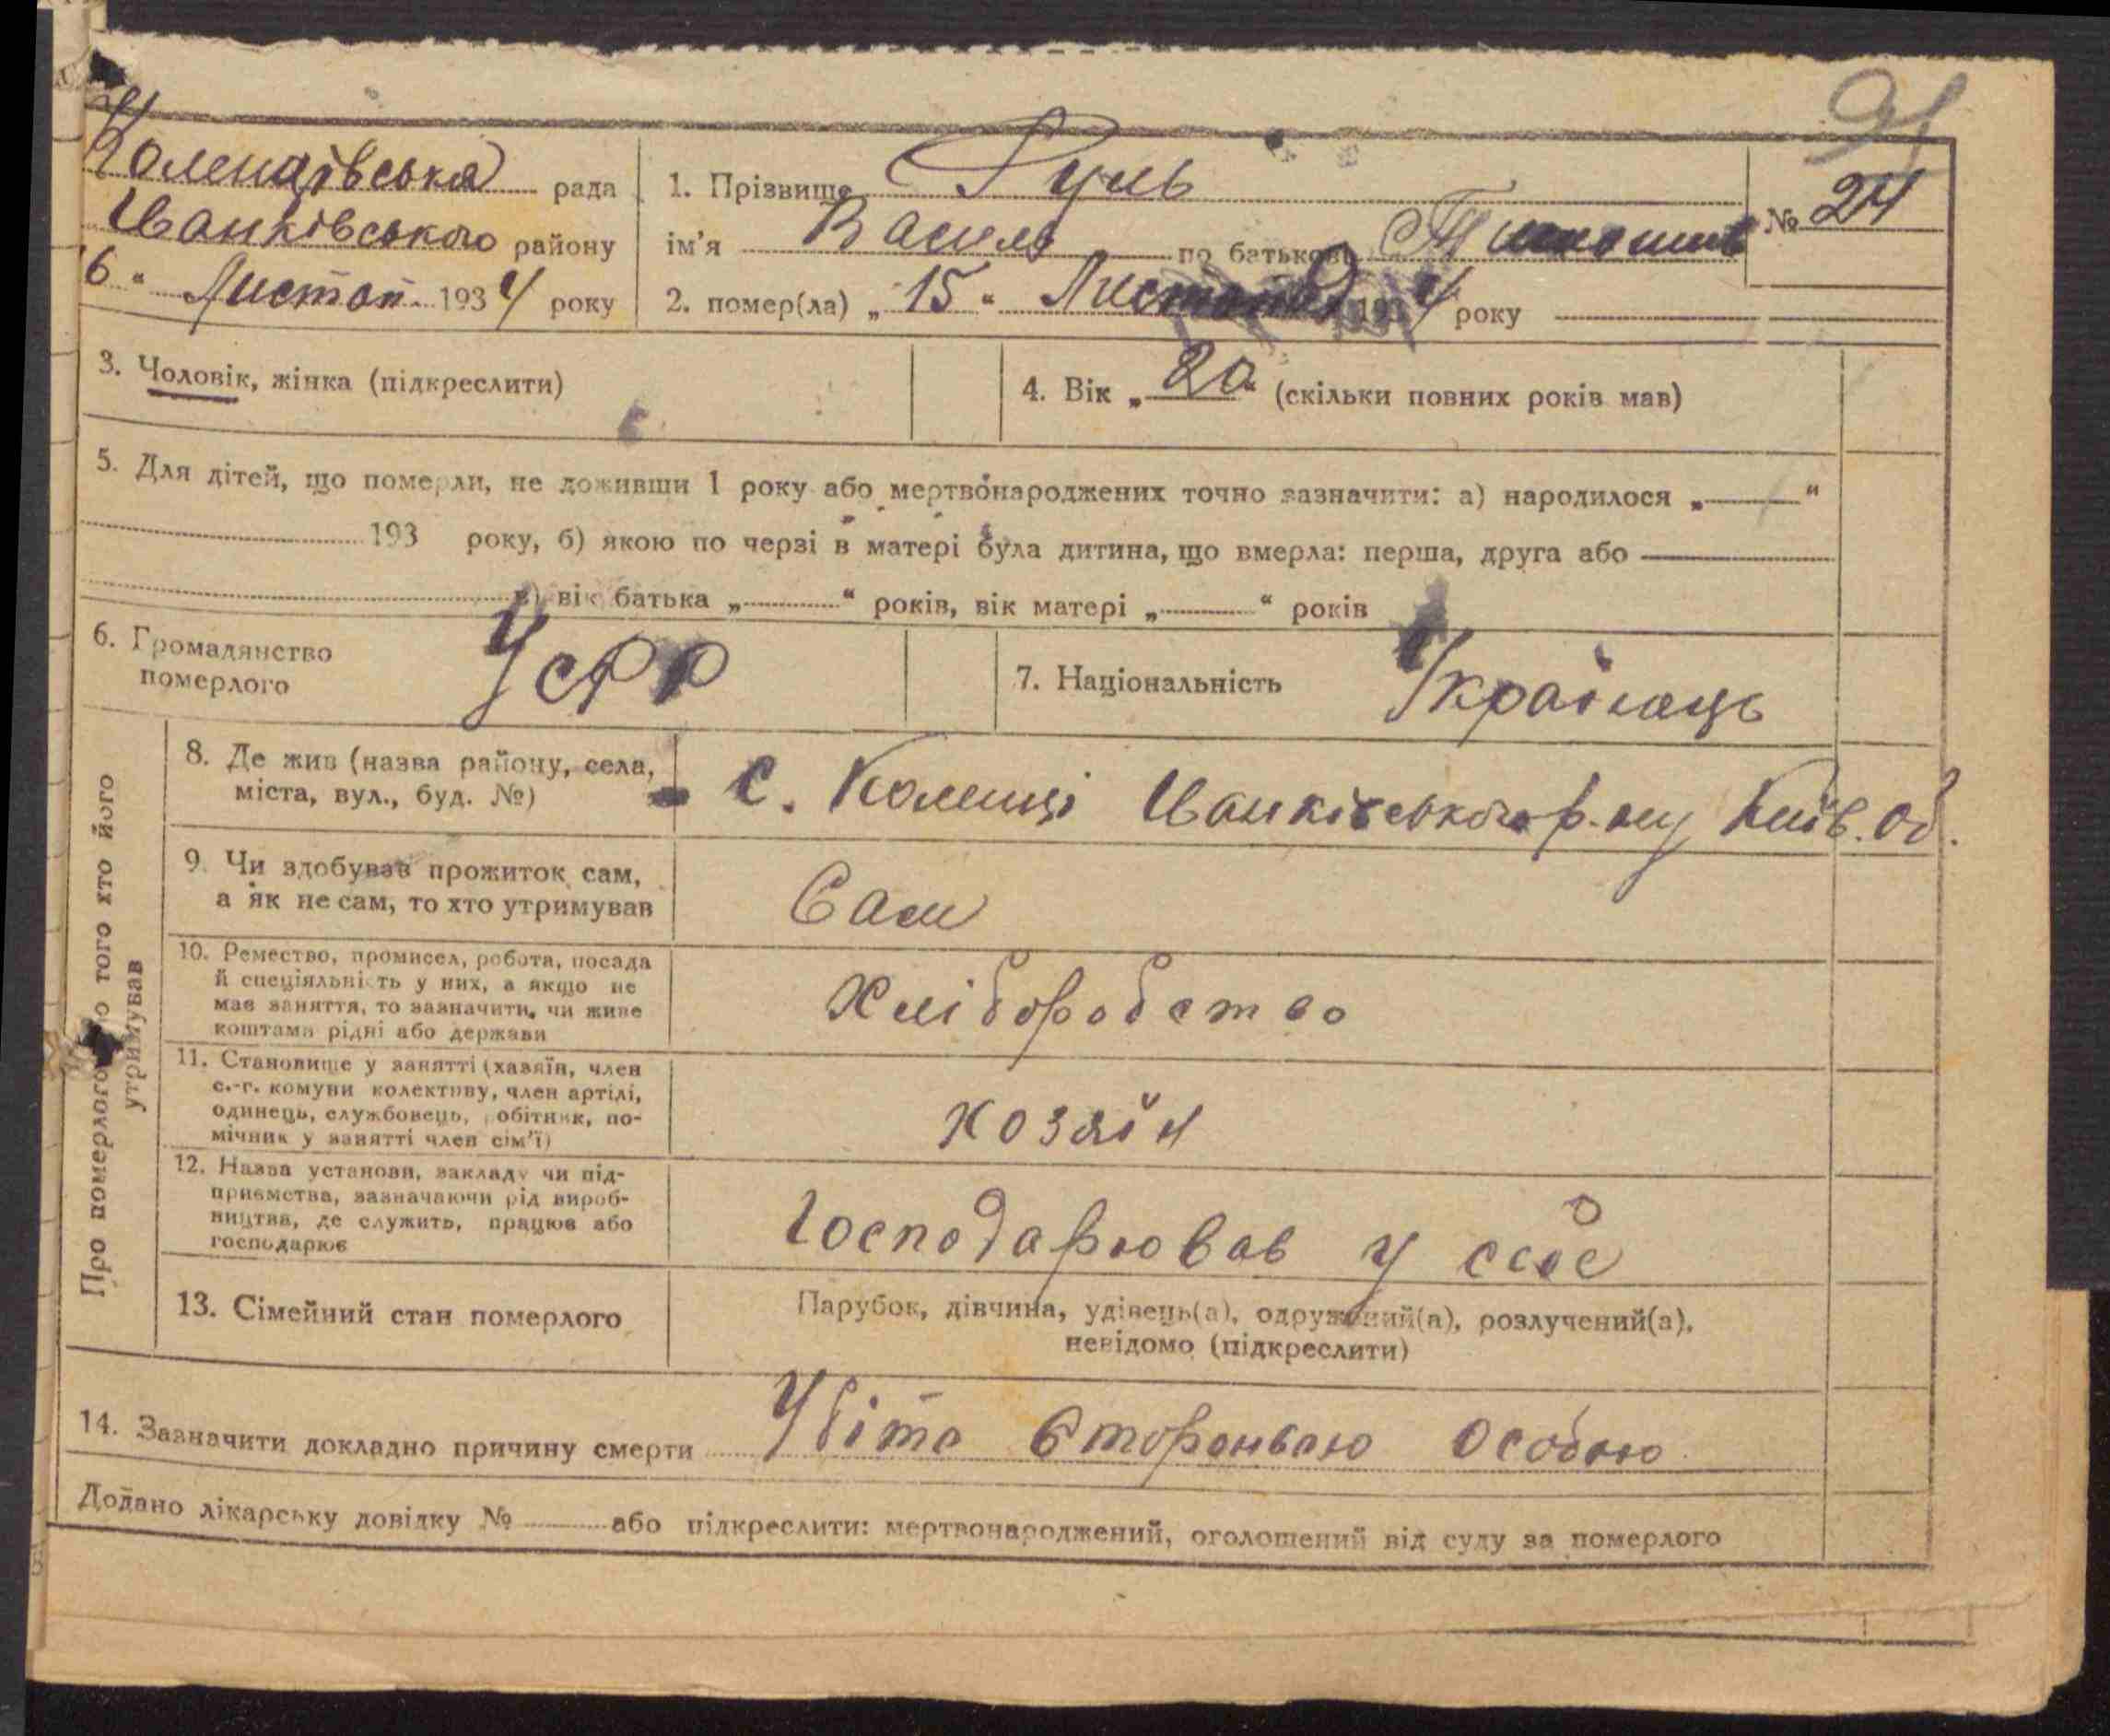 91
Коленцівська рада
Іванківського району
16 " Листоп. 1934 року
1. Прізвище Гуль
ім'я Василь по батькові
№ 24
2. помер(ла) „ 15 " Листопад 1934 року
3. Чоловік, жінка (підкреслити)
4. Вік „ 20 " (скільки повних років мав)
5. Для дітей, що померли, не доживши 1 року або мертвонароджених точно зазначити: а) народилося „ "
193 року, б) якою по черзі в матері була дитина, що вмерла: перша, друга або
в) вік батька „ " років, вік матері „ " років
6. Громадянство
померлого
УСРР
7. Національність Українець
Про померлого або того хто його
утримував
8. Де жив (назва району, села,
міста, вул., буд. №)
с. Коленці Іванківського р-ну Київ. Об.
9. Чи здобував прожиток сам,
а як не сам, то хто утримував
Сам
10. Ремество, промисел, робота, посада
й спеціяльність у них, а якщо не
мав заняття, то зазначити, чи живе
коштами рідні або держави
Хліборобство
11. Становище у занятті (хазяїн, член
с.-г. комуни колективу, член артілі,
одинець, службовець, робітник, по-
мічник у занятті член сім'ї)
хозяїн
12. Назва установи, закладу чи під-
приємства, зазначаючи рід вироб-
ництва, де служить, працює або
господарює
Господарював у себе
13. Сімейний стан померлого
Парубок, дівчина, удівець(а), одружений(а), розлучений(а),
невідомо (підкреслити)
14. Зазначити докладно причину смерти Убіто сторонньою особою
Додано лікарську довідку № або підкреслити: мертвонароджений, оголошений від суду за померлого